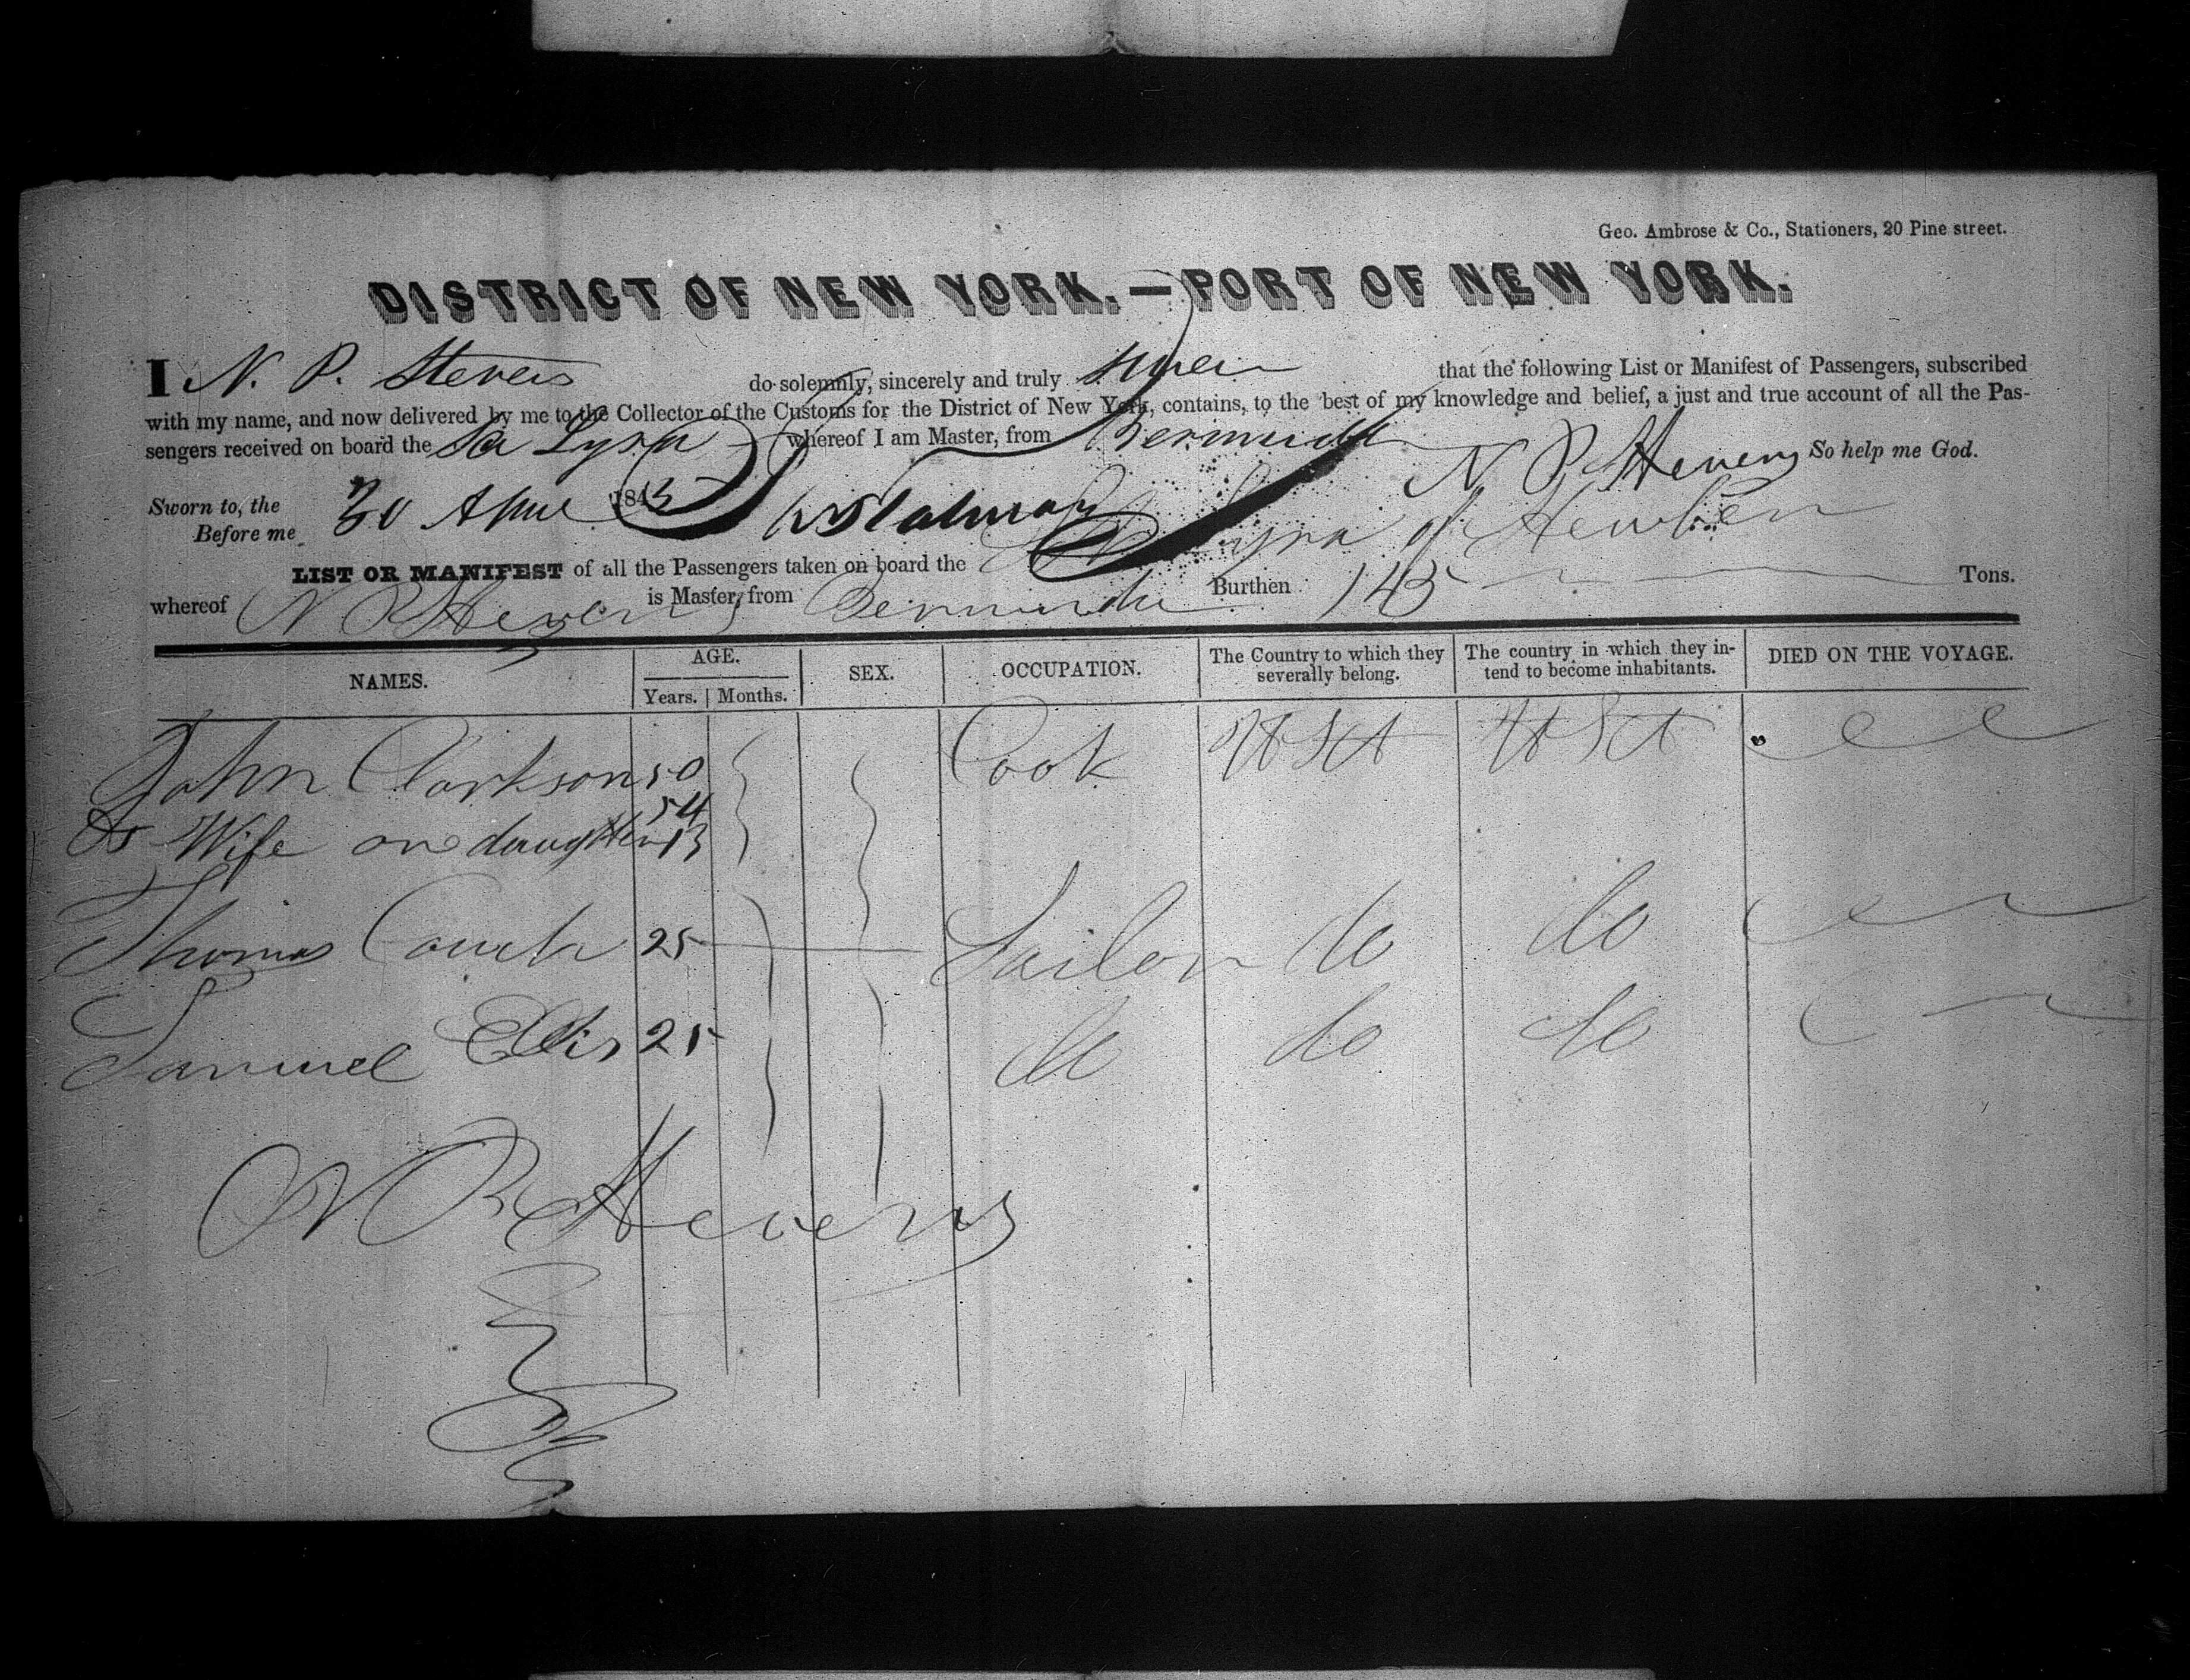 Geo. Ambrose & Co., Stationers, 20 Pine street.
DISTRICT OF NEW YORK.—PORT OF NEW YORK.
I N. P. Stevens do solemnly, sincerely and truly swear that the following List or Manifest of Passengers, subscribed
with my name, and now delivered by me to the Collector of the Customs for the District of New York, contains, to the best of my knowledge and belief, a just and true account of all the Pas-
sengers received on board the Lyra whereof I am Master, from Bermuda So help me God.
N P Stevens
Sworn to, the 30 184
Before me
LIST OR MANIFEST of all the Passengers taken on board the Lyra of
whereof N P Stevens is Master, from Bermuda Burthen 145 Tons.
NAMES. AGE. Years. Months. SEX. OCCUPATION. The Country to which they severally belong. The country in which they in-tend to become inhabitants. DIED ON THE VOYAGE.
John Clarkson 50 Cook
54
& Wife daughter 13
Thomas Couch 25 Sailor do do
Samuel Ellis 25 do do do
N P Stevens